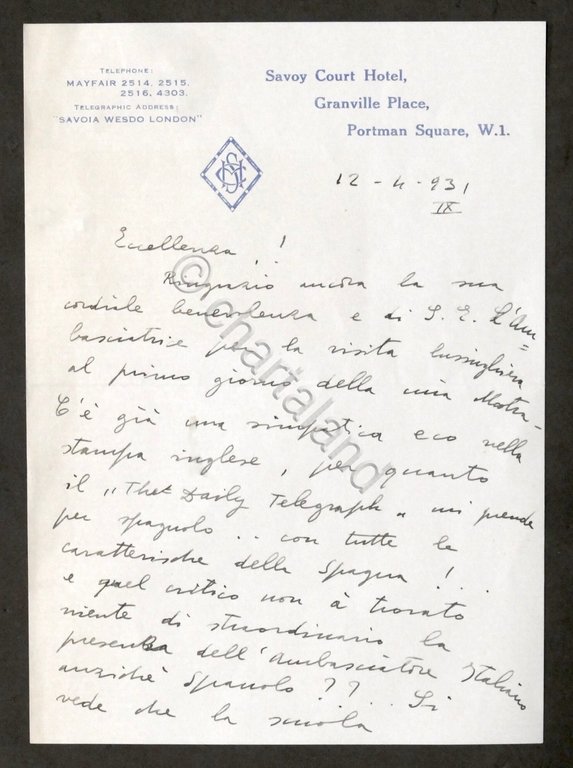 TELEPHONE:
MAYFAIR 2514, 2515.
2516, 4303.
TELEGRAPHIC ADDRESS:
"SAVOIA WESDO LONDON"
Savoy Court Hotel,
Granville Place,
Portman Square, W.1.
12 - 4 - 931
IX
Eccellenza!
Ringrazio ancora la sua
cordiale benevolenza e di S. E. L'Am=
basciatrice per la visita lusinghiera
al primo giorno della mia Mostra -
C'è già una simpatica eco nella
stampa inglese, per quanto
il "The Daily Telegraph" mi prende
per spagnolo .. con tutte le
caratteristiche della Spagna! ...
e quel critico non à trovato
niente di straordinario la
presenza dell'Ambasciatore Italiano
anzichè Spagnolo ?? ... Si
vede che la scuola
© chartaland